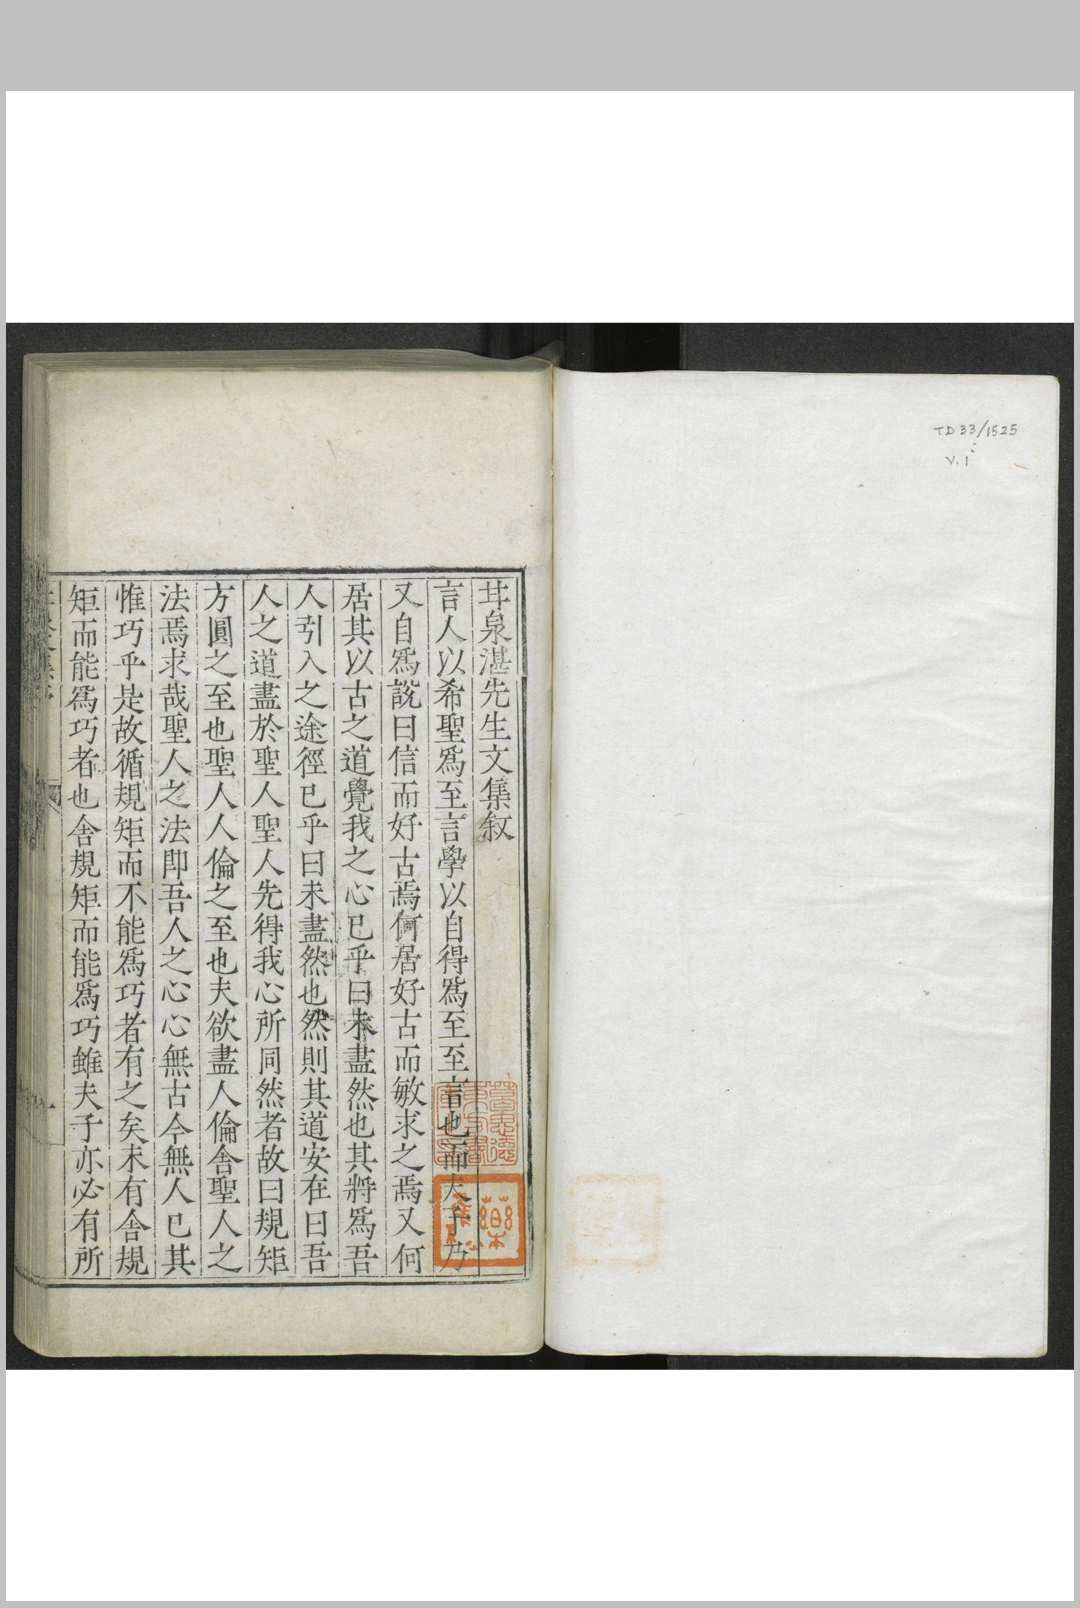 TD 33/1525
V. 1
甘泉湛先生文集叙
言人以希聖爲至言學以自得爲至至言也而夫子乃
又自爲說曰信而好古焉何居好古而敏求之焉又何
居其以古之道覺我之心已乎曰未盡然也其將爲吾
人引入之途徑已乎曰未盡然也然則其道安在曰吾
人之道盡於聖人聖人先得我心所同然者故曰規矩
方圓之至也聖人人倫之至也夫欲盡人倫舍聖人之
法焉求哉聖人之法即吾人之心心無古今無人已其
惟巧乎是故循規矩而不能爲巧者有之矣未有舍規
矩而能爲巧者也舍規矩而能爲巧雖夫子亦必有所